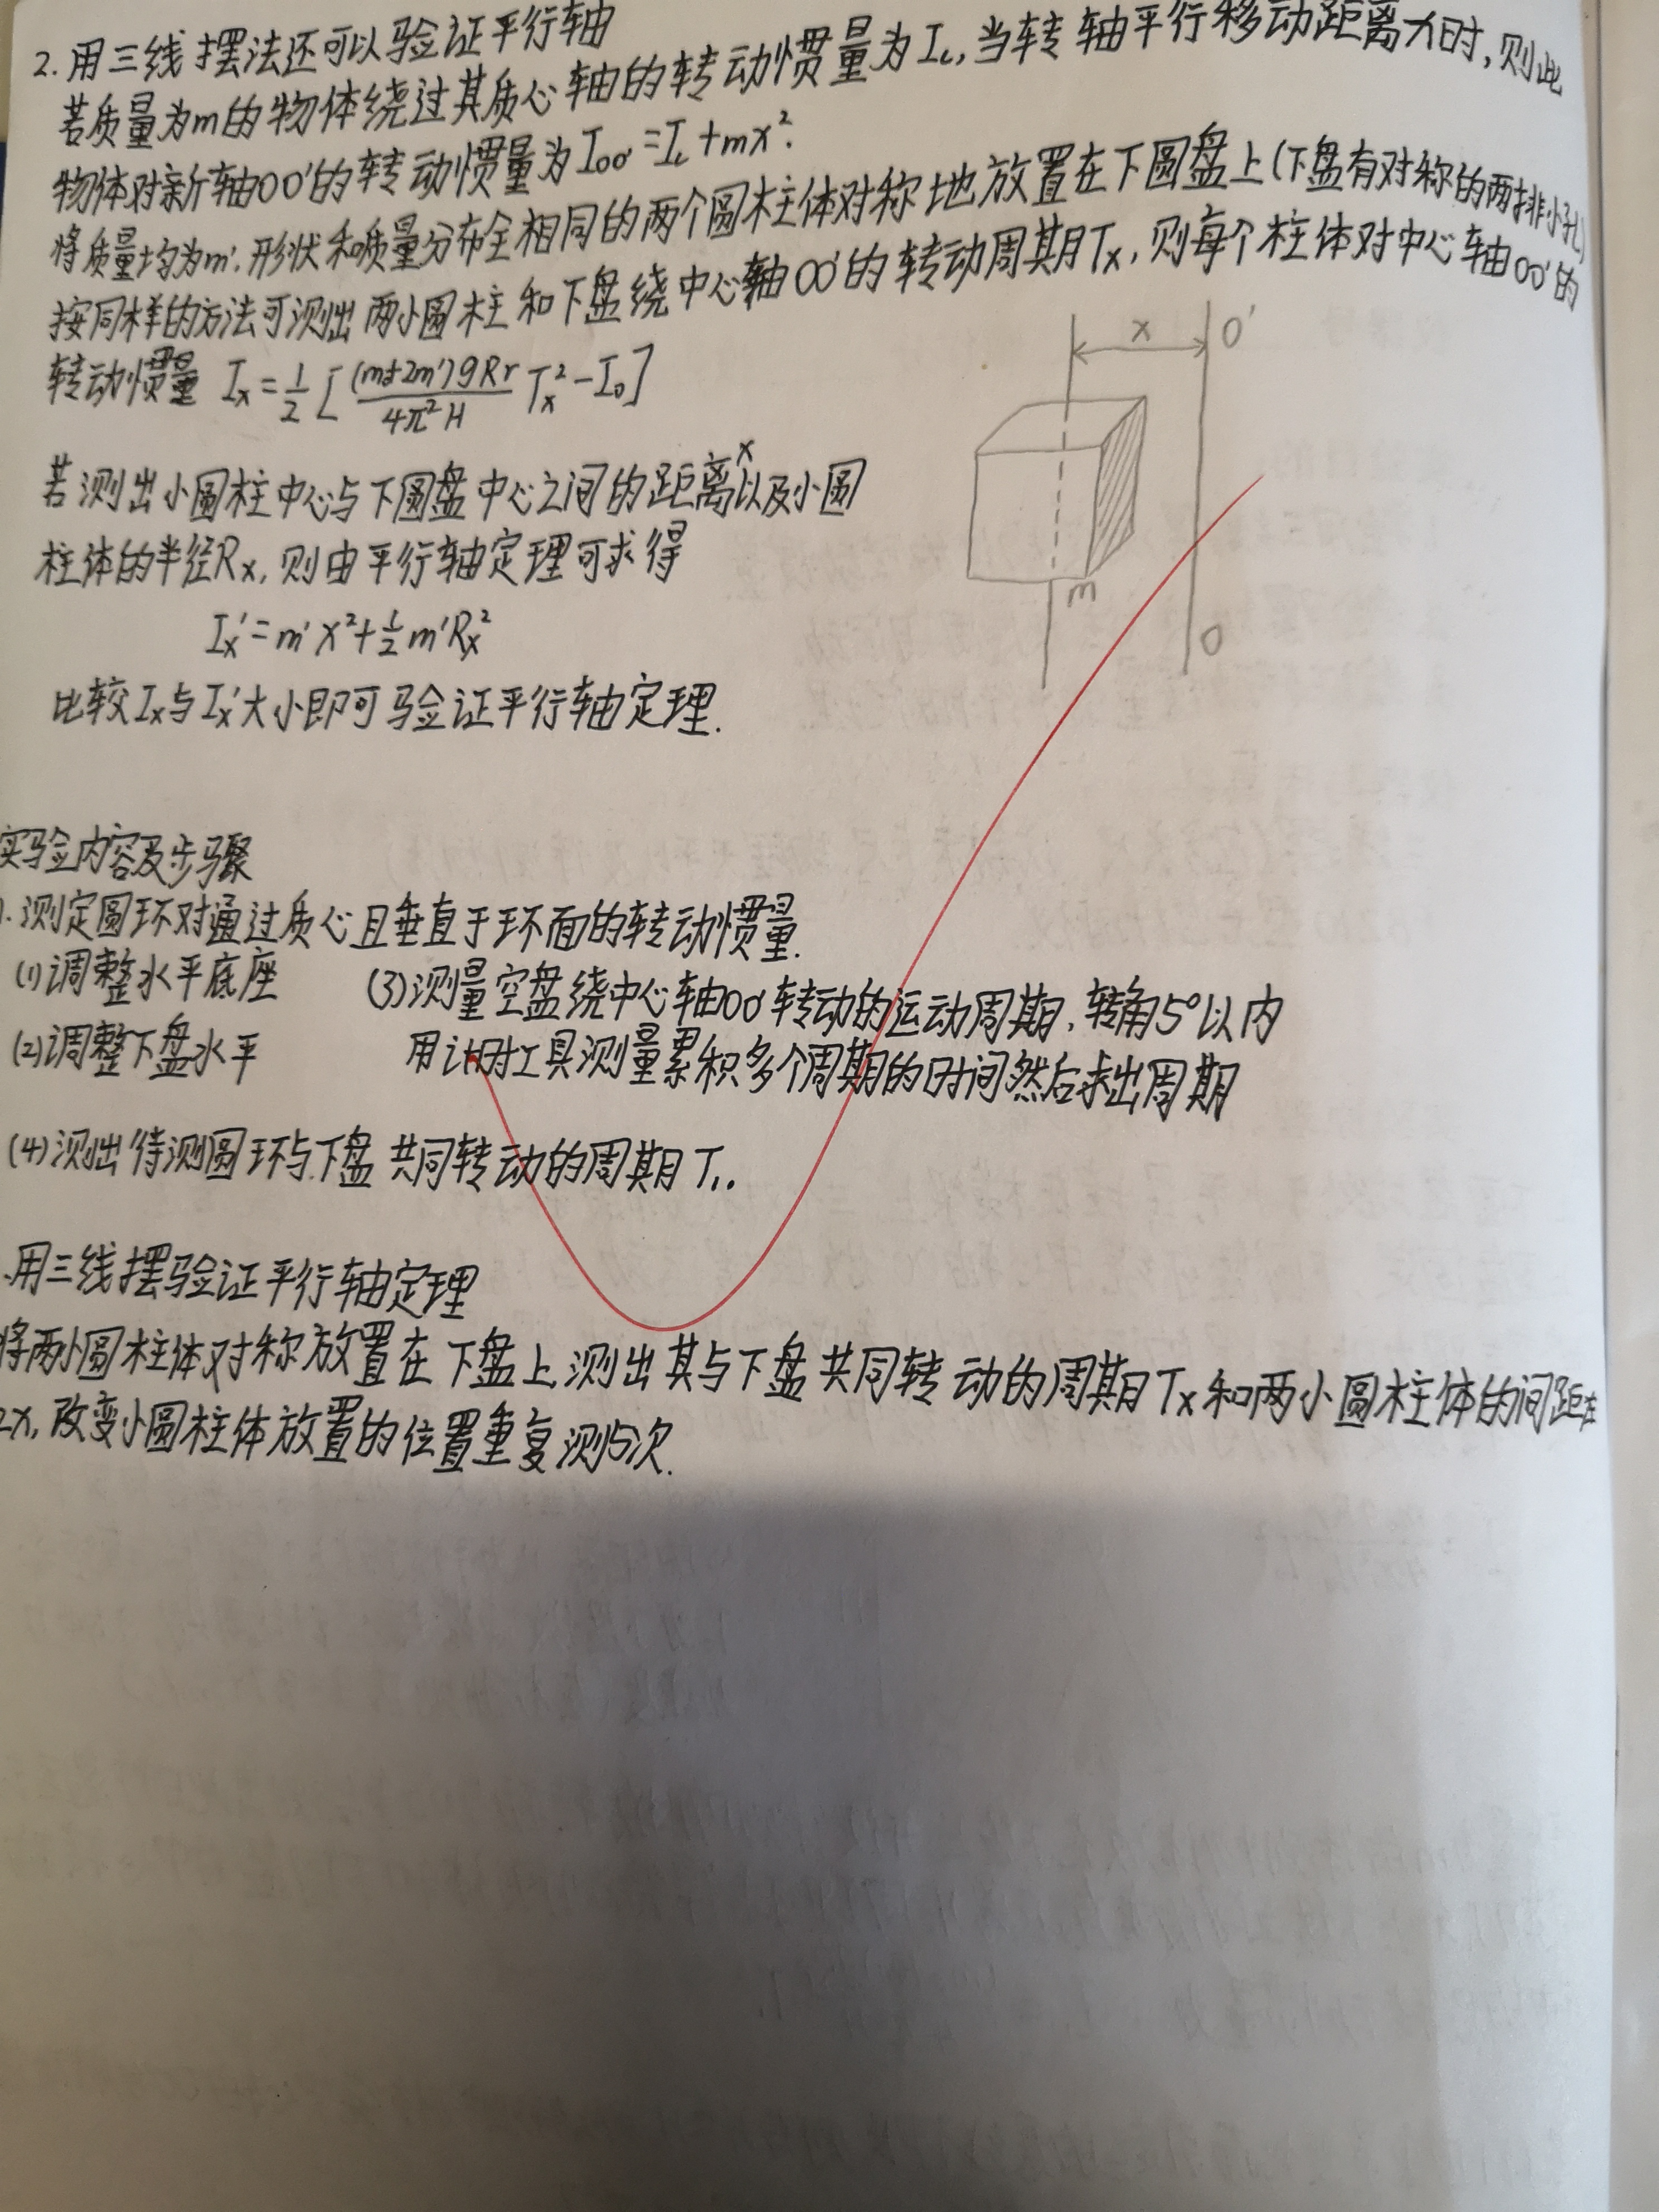 2.用三线摆法还可以验证平行轴
若质量为m的物体绕过其质心轴的转动惯量为Ic,当转轴平行移动距离x时,则此
物体对新轴OO'的转动惯量为Ioo'=Ic+mx².
将质量均为m',形状和质量分布全相同的两个圆柱体对称地放置在下圆盘上(下盘有对称的两排小孔)
按同样的方法可测出两小圆柱和下盘绕中心轴OO'的转动周期Tx,则每个柱体对中心轴OO'的
转动惯量 Ix=1/2[(m+2m')gRr/4π²H Tx²-I₀]
x O'
若测出小圆柱中心与下圆盘中心之间的距离x以及小圆
柱体的半径Rx,则由平行轴定理可求得
m
O
Ix'=m'x²+1/2m'Rx²
比较Ix与Ix'大小即可验证平行轴定理.
实验内容及步骤
1.测定圆环对通过质心且垂直于环面的转动惯量.
(1)调整水平底座 (3)测量空盘绕中心轴OO'转动的运动周期,转角5°以内
(2)调整下盘水平 用计时工具测量累积多个周期的时间然后求出周期
(4)测出待测圆环与下盘共同转动的周期T₁.
.用三线摆验证平行轴定理
将两小圆柱体对称放置在下盘上,测出其与下盘共同转动的周期Tx和两小圆柱体的间距
2x,改变小圆柱体放置的位置重复测5次.